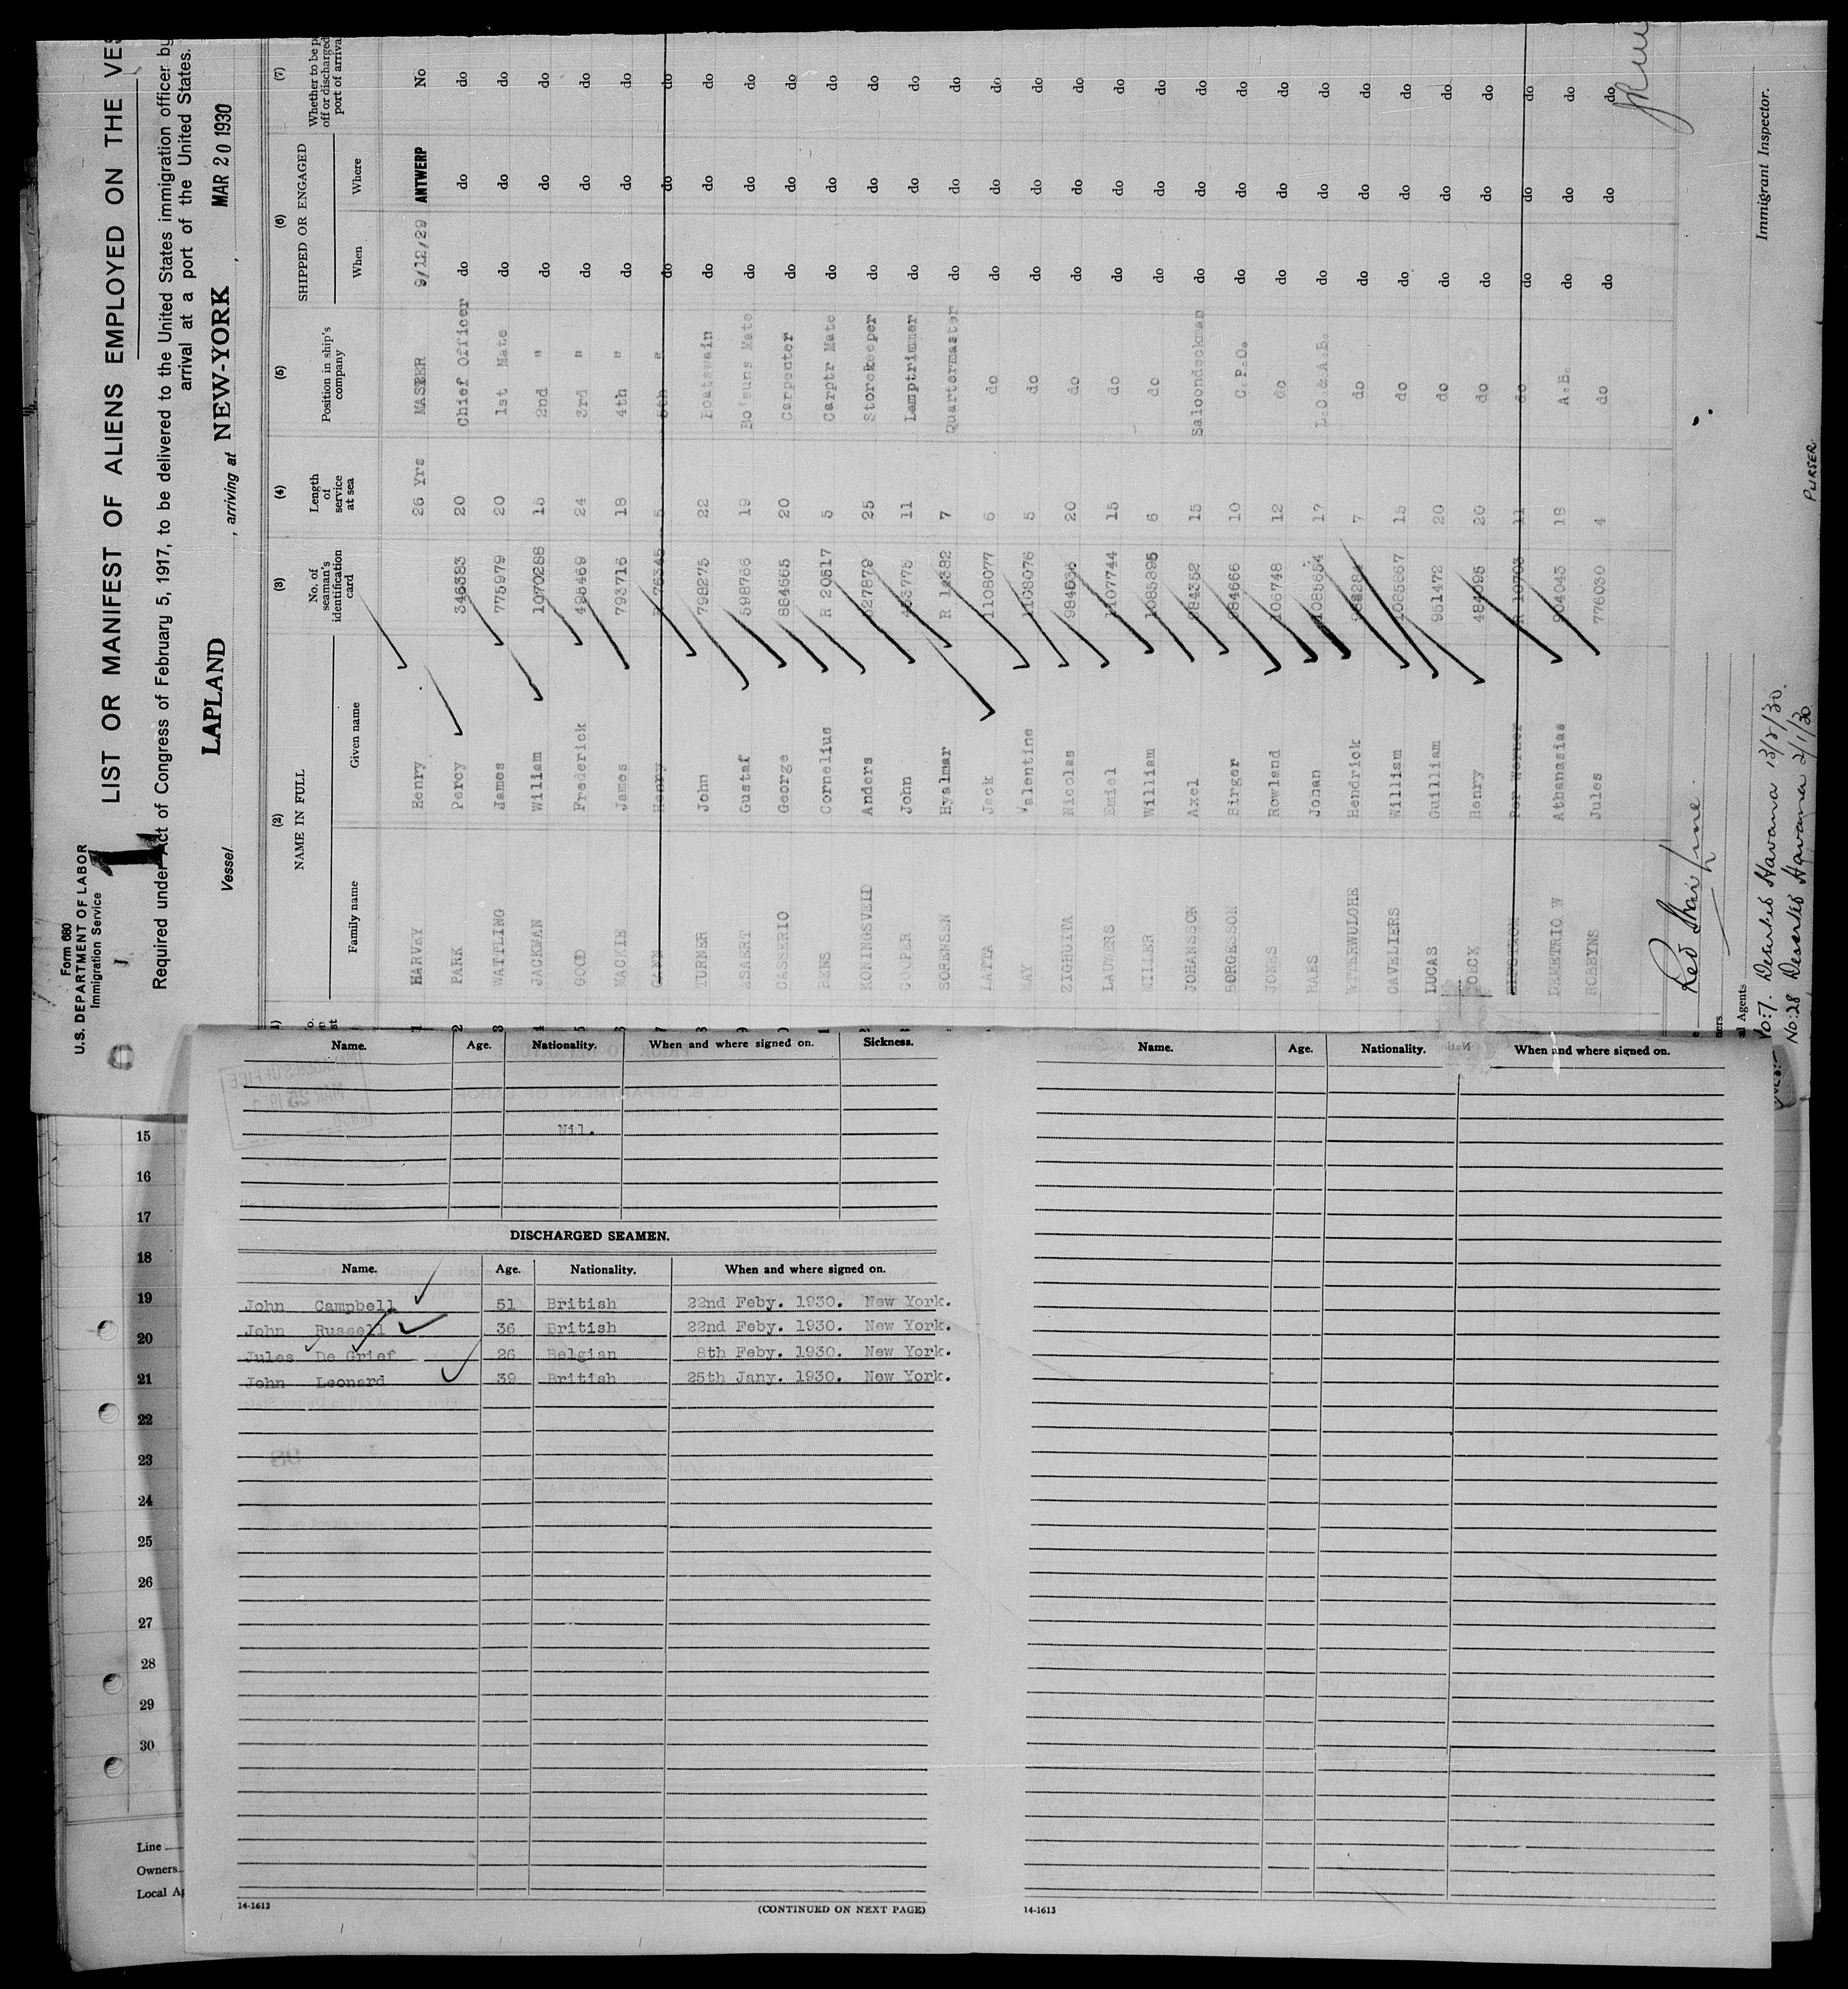 Form 680
U.S. DEPARTMENT OF LABOR
Immigration Service
1
LIST OR MANIFEST OF ALIENS EMPLOYED ON THE VES
Required under Act of Congress of February 5, 1917, to be delivered to the United States immigration officer by
arrival at a port of the United States.
Vessel LAPLAND, arriving at NEW-YORK, MAR 20 1930
(2) (3) (4) (5) (6) (7)
NAME IN FULL No. of seaman's identification card Length of service at sea Position in ship's company SHIPPED OR ENGAGED Whether to be p off or discharged port of arrival
Family name Given name When Where
1 HARVEY Henry 26 Yrs MASTER 9/12/29 ANTWERP No
2 PARK Percy 346383 20 Chief Officer do do do
3 WATTLING James 775979 20 1st Mate do do do
4 JACKMAN William 1070288 15 2nd " do do do
5 GOOD Frederick 495469 24 3rd " do do do
6 MACKIE James 793716 18 4th " do do do
7 Henry 5 5th " do do do
8 TURNER John 798275 22 Boatswain do do do
9 ASAERT Gustaf 598766 19 Bo'suns Mate do do do
0 CASSERIO George 884565 20 Carpenter do do do
1 RENS Cornelius R 20517 5 Carptr Mate do do do
2 KONINGSVELD Anders 627879 25 Storekeeper do do do
3 COOPER John 453775 11 Lamptrimmer do do do
SORENSEN Hyalmar R 14382 7 Quartermaster do do do
LATTA Jack 1108077 6 do do do do
MAY Valentine 1108076 5 do do do do
ZIGHUITA Nicolas 984636 20 do do do do
LAUWERS Emiel 1107744 15 do do do do
MILLER William 1085895 6 do do do do
JOHANSSON Axel 984352 15 Saloondeckman do do do
BORGESSON Birger 984666 10 C.P.O. do do do
JONES Rowland 106748 12 do do do do
RAES Johan 1085654 17 L.O.& A.B. do do do
WYTERWULGHE Hendrick 984284 7 do do do do
CAVELIERS William 1085867 15 do do do do
LUCAS Guilliam 951472 20 do do do do
Henry 484095 20 do do do do
Per Werner R 10703 11 do do do do
DEMETRIO W Athanasias 904043 18 A.B. do do do
ROBBYNS Jules 776030 4 do do do do
Red Star Line
ners
al Agents
Immigrant Inspector.
No: 7. Deserted Havana 13/2/30.
No: 28 Deserted Havana 2/1/30
PURSER
Name. Age. Nationality. When and where signed on. Sickness.
Nil.
DISCHARGED SEAMEN.
Name. Age. Nationality. When and where signed on.
John Campbell 51 British 22nd Feby. 1930. New York.
John Russell 36 British 22nd Feby. 1930. New York.
Jules De Grief 26 Belgian 8th Feby. 1930. New York.
John Leonard 39 British 25th Jany. 1930. New York.
14-1613
(CONTINUED ON NEXT PAGE)
Name. Age. Nationality. When and where signed on.
14-1613
15
16
17
18
19
20
21
22
23
24
25
26
27
28
29
30
Line
Owners
Local Ag